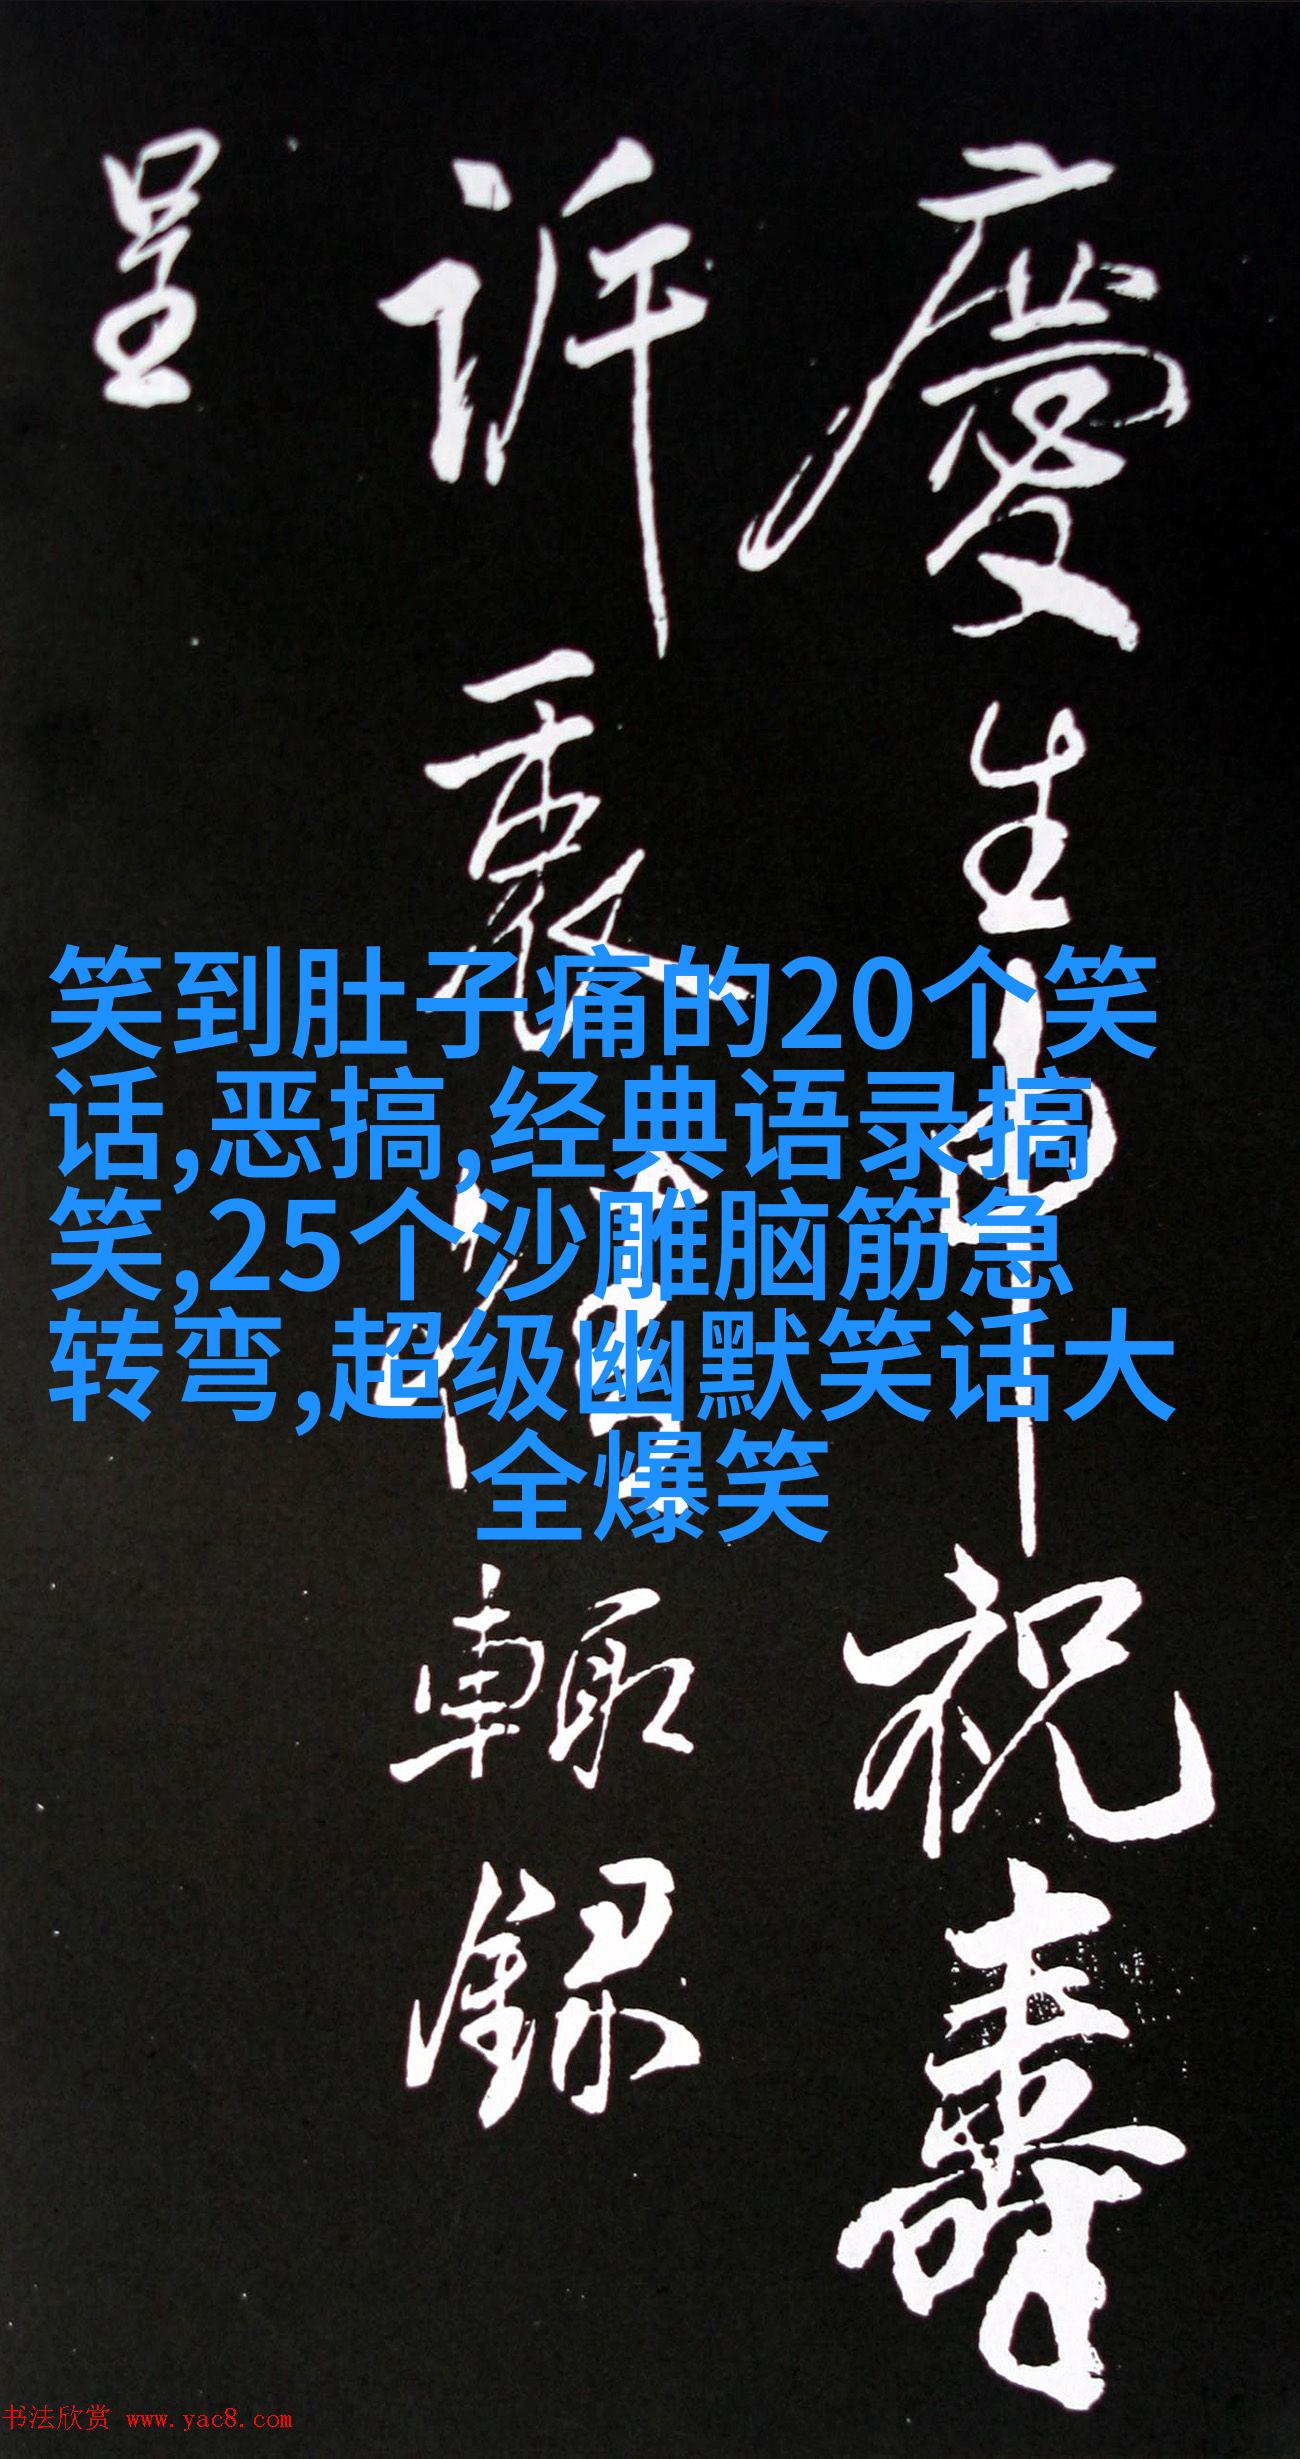 慶生申祝壽
訴裏情輒録
呈
笑到肚子痛的20个笑
话,恶搞,经典语录搞
笑,25个沙雕脑筋急
转弯,超级幽默笑话大
全爆笑
书法欣赏 www.yac8.com